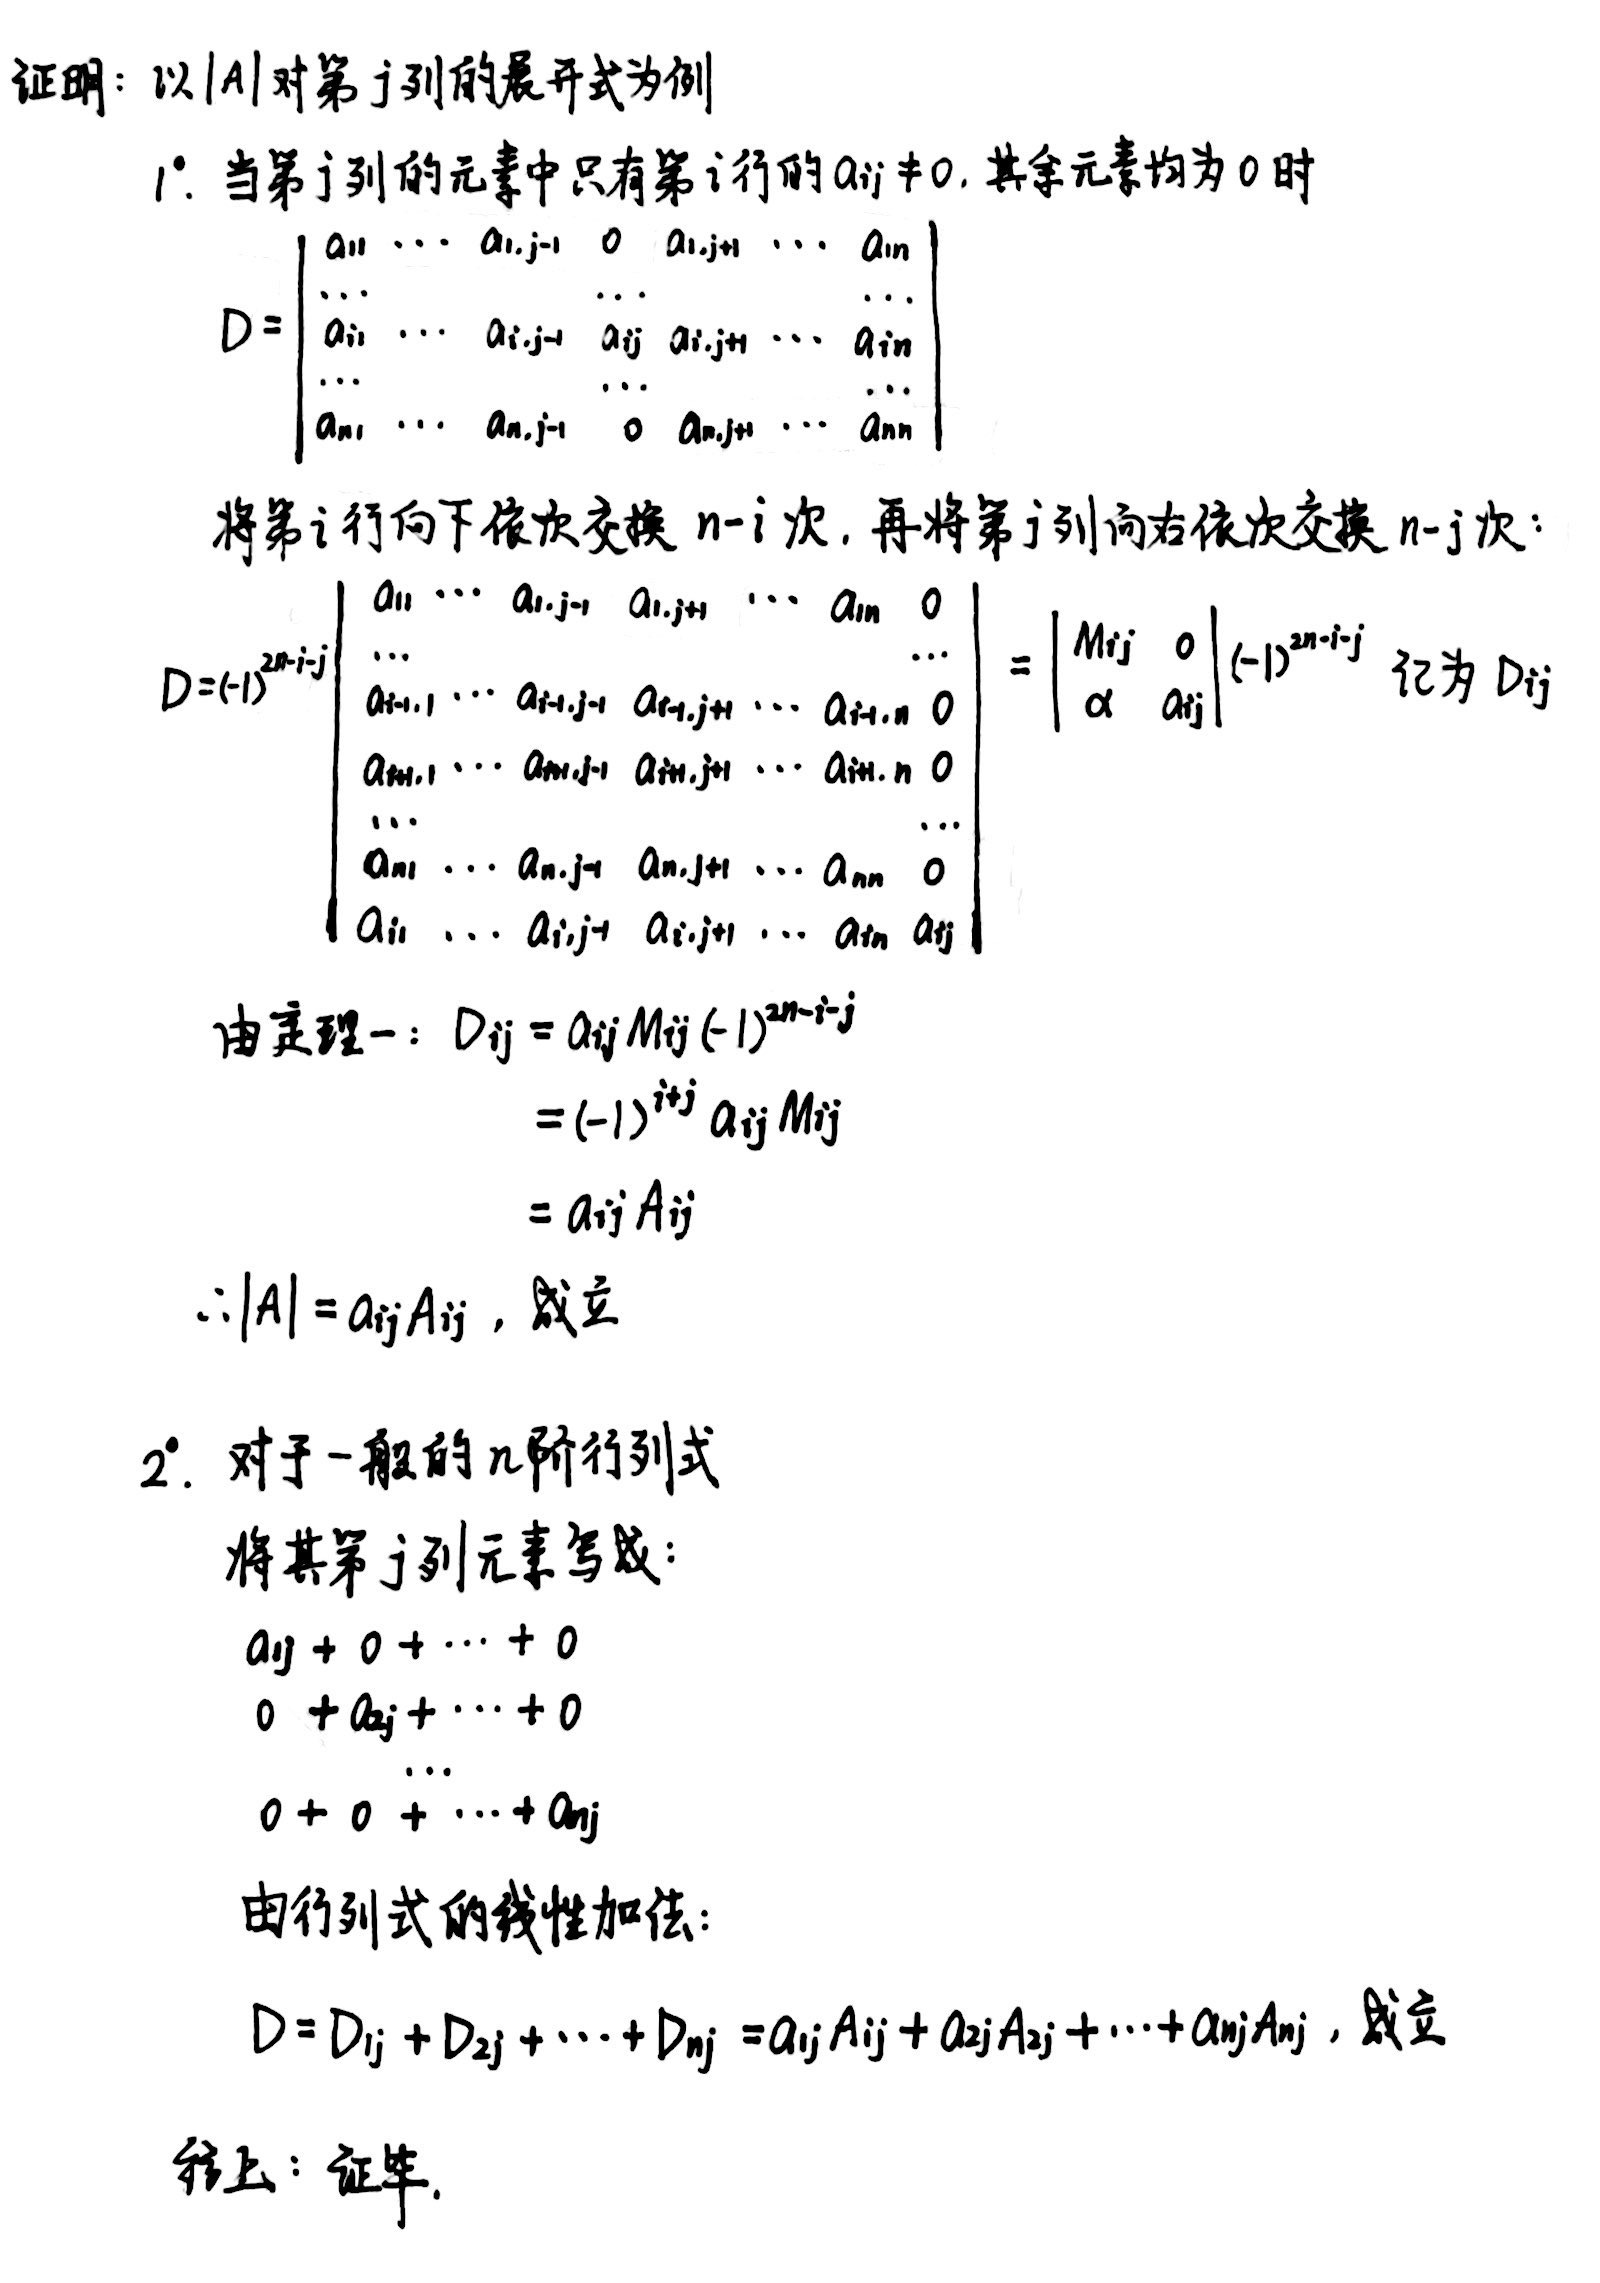 证明：以|A|对第j列的展开式为例
1°. 当第j列的元素中只有第i行的aij≠0, 其余元素均为0时
D = | a11 ⋯ a1.j-1 0 a1.j+1 ⋯ a1n |
⋯ ⋯ ⋯
ai1 ⋯ ai.j-1 aij ai.j+1 ⋯ ain
⋯ ⋯ ⋯
an1 ⋯ an.j-1 0 an.j+1 ⋯ ann
将第i行向下依次交换 n-i 次, 再将第j列向右依次交换 n-j 次：
D=(-1)^{2n-i-j} | a11 ⋯ a1.j-1 a1.j+1 ⋯ a1n 0 | = | Mij 0 | (-1)^{2n-i-j} 记为 Dij
⋯ ⋯
ai-1.1 ⋯ ai-1.j-1 ai-1.j+1 ⋯ ai-1.n 0 | α aij |
ai+1.1 ⋯ ai+1.j-1 ai+1.j+1 ⋯ ai+1.n 0
⋯ ⋯
an1 ⋯ an.j-1 an.j+1 ⋯ ann 0
ai1 ⋯ ai.j-1 ai.j+1 ⋯ ain aij
由定理一： Dij = aij Mij (-1)^{2n-i-j}
= (-1)^{i+j} aij Mij
= aij Aij
∴|A| = aij Aij , 成立
2°. 对于一般的n阶行列式
将其第j列元素写成：
a1j + 0 + ⋯ + 0
0 + a2j + ⋯ + 0
⋯
0 + 0 + ⋯ + anj
由行列式的线性加法：
D = D1j + D2j + ⋯ + Dnj = a1j A1j + a2j A2j + ⋯ + anj Anj , 成立
综上：证毕.